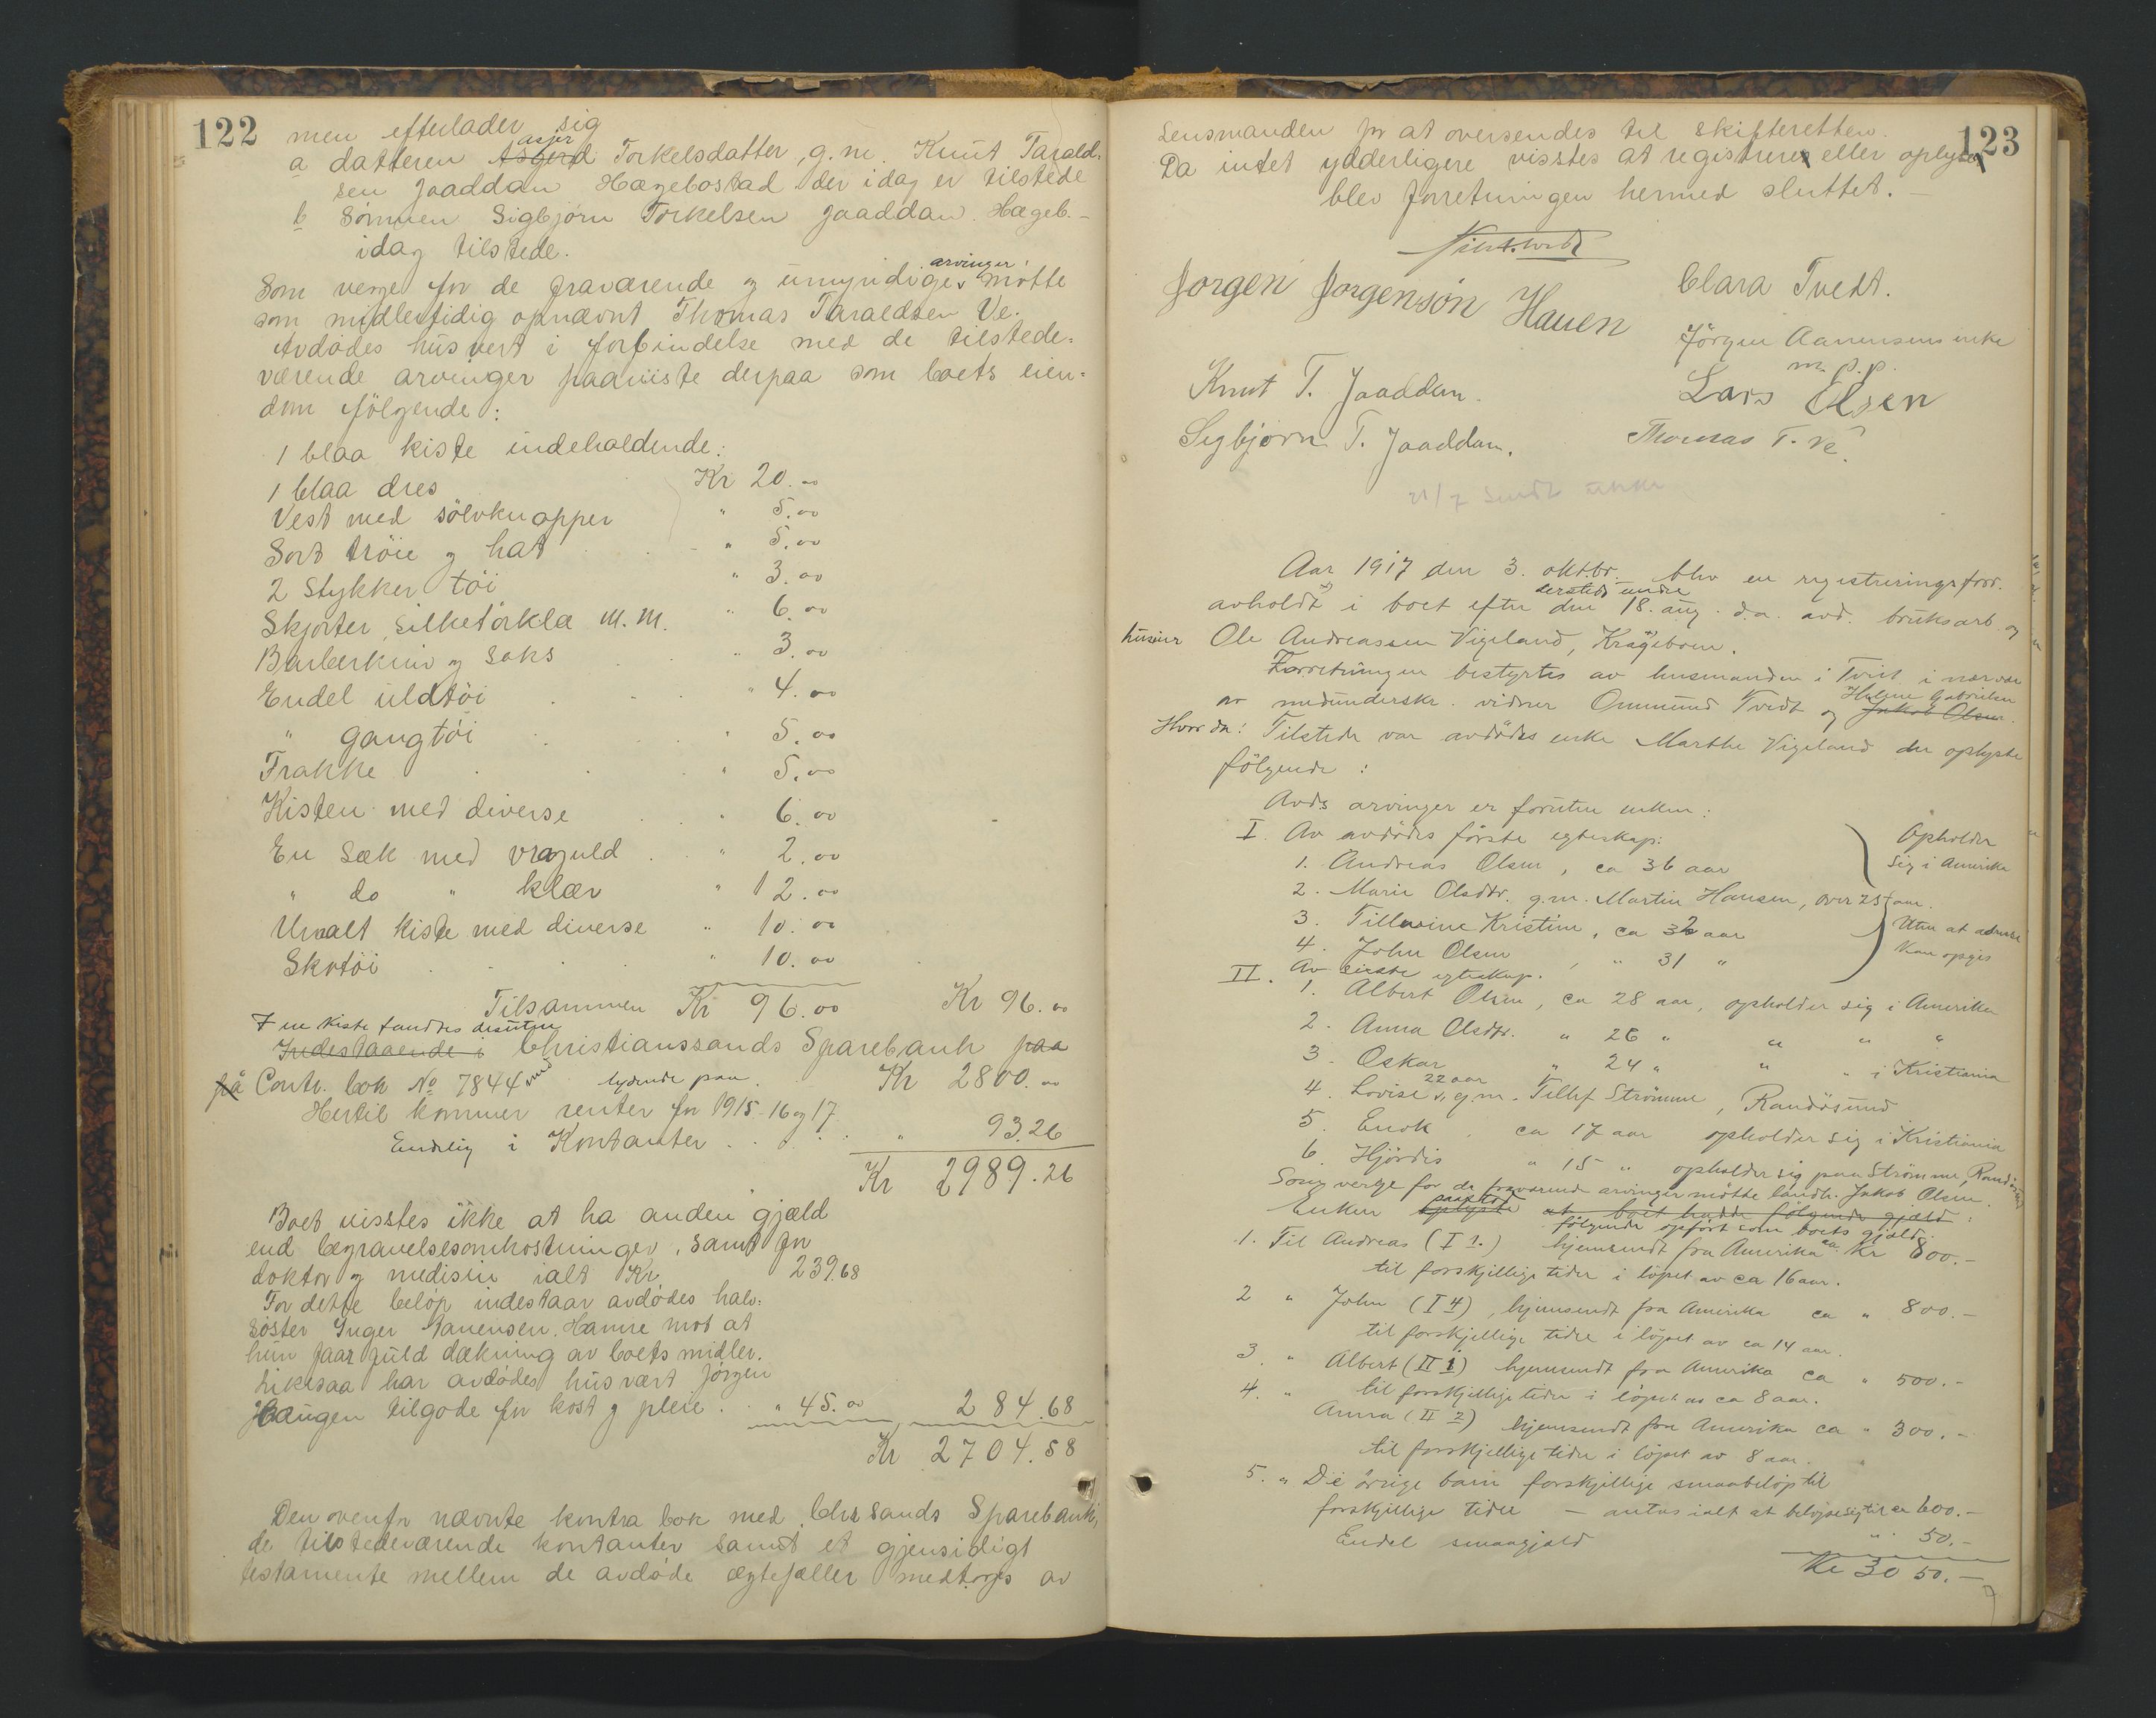 122
men efterlader sig
a datteren Asgerd Asjer Torkelsdatter, g.m. Knut Tarald-
sen Jaaddan Hægebostad der idag er tilstede
b Sönnen Sigbjörn Torkelsen Jaaddan. Hægeb.-
idag tilstede.
Som verge for de fraværende og umyndige arvinger mötte
som midlertidig opnævnt Thomas Taraldsen Ve.
Avdödes husvert i forbindelse med de tilstede-
værende arvinger paaviste derpaa som boets eien-
dom fölgende:
1 blaa kiste indeholdende:
1 blaa dres Kr 20.00
Vest med sölvknapper " 5.00
Sort tröie og hat " 5.00
2 Stykker töi " 3.00
Skjorter, silketörklæ m.m. " 6.00
Barberkniv og saks " 3.00
Endel uldtöi " 4.00
" gangtöi " 5.00
Frakke " 5.00
Kisten med diverse " 6.00
En Sæk med vraguld " 2.00
" do " klær " 12.00
Umalt kiste med diverse " 10.00
Skotöi " 10.00
Tilsammen Kr 96.00 Kr 96.00
I en kiste fandtes desuten
Indestaaende i Christianssands Sparebank paa
på Contr. bok No 7844 med lydende paa Kr 2800.00
Hertil kommer renter for 1915-16 og 17
Endelig i Kontanter " 93.26
Kr 2989.26
Boet visstes ikke at ha anden gjæld
end begravelsesomkostninger, samt for
doktor og medisin ialt Kr 239.68
For dette belöp indestaar avdödes halv-
söster Inger Aanensen. Hamre mot at
hun faar fuld dækning av boets midler.
Likesaa har avdödes husvært Jörgen
Haugen tilgode for kost og pleie. " 45.00 284.68
Kr 2704.58
Den ovenfor nævnte kontra bok med Chrsands Sparebank,
de tilstedeværende kontanter samt et gjensidigt
testamente mellem de avdöde ægtefæller medtoges av
123
Lensmanden for at oversendes til skifteretten.
Da intet ydderligere visstes at registrere eller oplyse
blev forretningen hermed sluttet.-
Jorgen Jorgensön Hauen
Clara Tvedt.
Jörgen Aanensens enke
m. p. p.
Knut T. Jaaddan.
Lars Olsen
Segbjörn T. Jaaddan.
Thomas T. Ve.
21/7 Sendt
Aar 1917 den 3. oktbr. blev en registreringsforr.
avholdt i boet efter den dersteds under 18. aug. d.a. avd. bruksarb. og
huseier Ole Andreassen Vigeland, Krageboen.
Forretningen bestyrtes av lensmanden i Tveit i nærvær
av medunderskr. vidner Ommund Tvedt og Jakob Olsen. Helene Gabrielsen
Hvor da: Tilstede var avdödes enke Marthe Vigeland der oplyste
fölgende:
Avds arvinger er foruten enken:
I. Av avdödes förste egteskap:
1. Andreas Olsen, ca 36 aar
Opholder
sig i Amerika
2. Marie Olsdtr. g.m. Martin Hansen, over 25 aar.
3. Tillesine Kristine, ca 32 aar
Uten at adresse
4. John Olsen, " 31 "
kan opgis
II. Av sidste egteskap.
1. Albert Olsen, ca 28 aar, opholder sig i Amerika
2. Anna Olsdtr. " 26 " " " "
3. Oskar " 24 " " " i Kristiania
4. Lovise 22 aar, g.m. Tellef Strömme, Randösund
5. Enok, ca 17 aar opholder sig i Kristiania
6. Hjördis " 15 " opholder sig paa Strömme, Randösund
Som verge for de fraværende arvinger mötte landh. Jakob Olsen
Enken oplyste at boet hadde fölgende gjæld:
fölgende opfört som boets gjæld:
1. Til Andreas (I 1.) hjemsendt fra Amerika ca Kr 800.-
til forskjellige tider i löpet av ca 16 aar.
2 " John (I 4), hjemsendt fra Amerika ca " 800.-
til forskjellige tider i löpet av ca 14 aar.
3. " Albert (II 1) hjemsendt fra Amerika ca " 500.-
til forskjellige tider i löpet av ca 8 aar.
4. " Anna (II 2) hjemsendt fra Amerika ca " 300.-
til forskjellige tider i löpet av 8 aar.
5. " De övrige barn forskjellige smaabelöp til
forskjellige tider - antas ialt at belöpe sig til ca 600.-
Endel smaagjæld " 50.-
Kr 3050.-